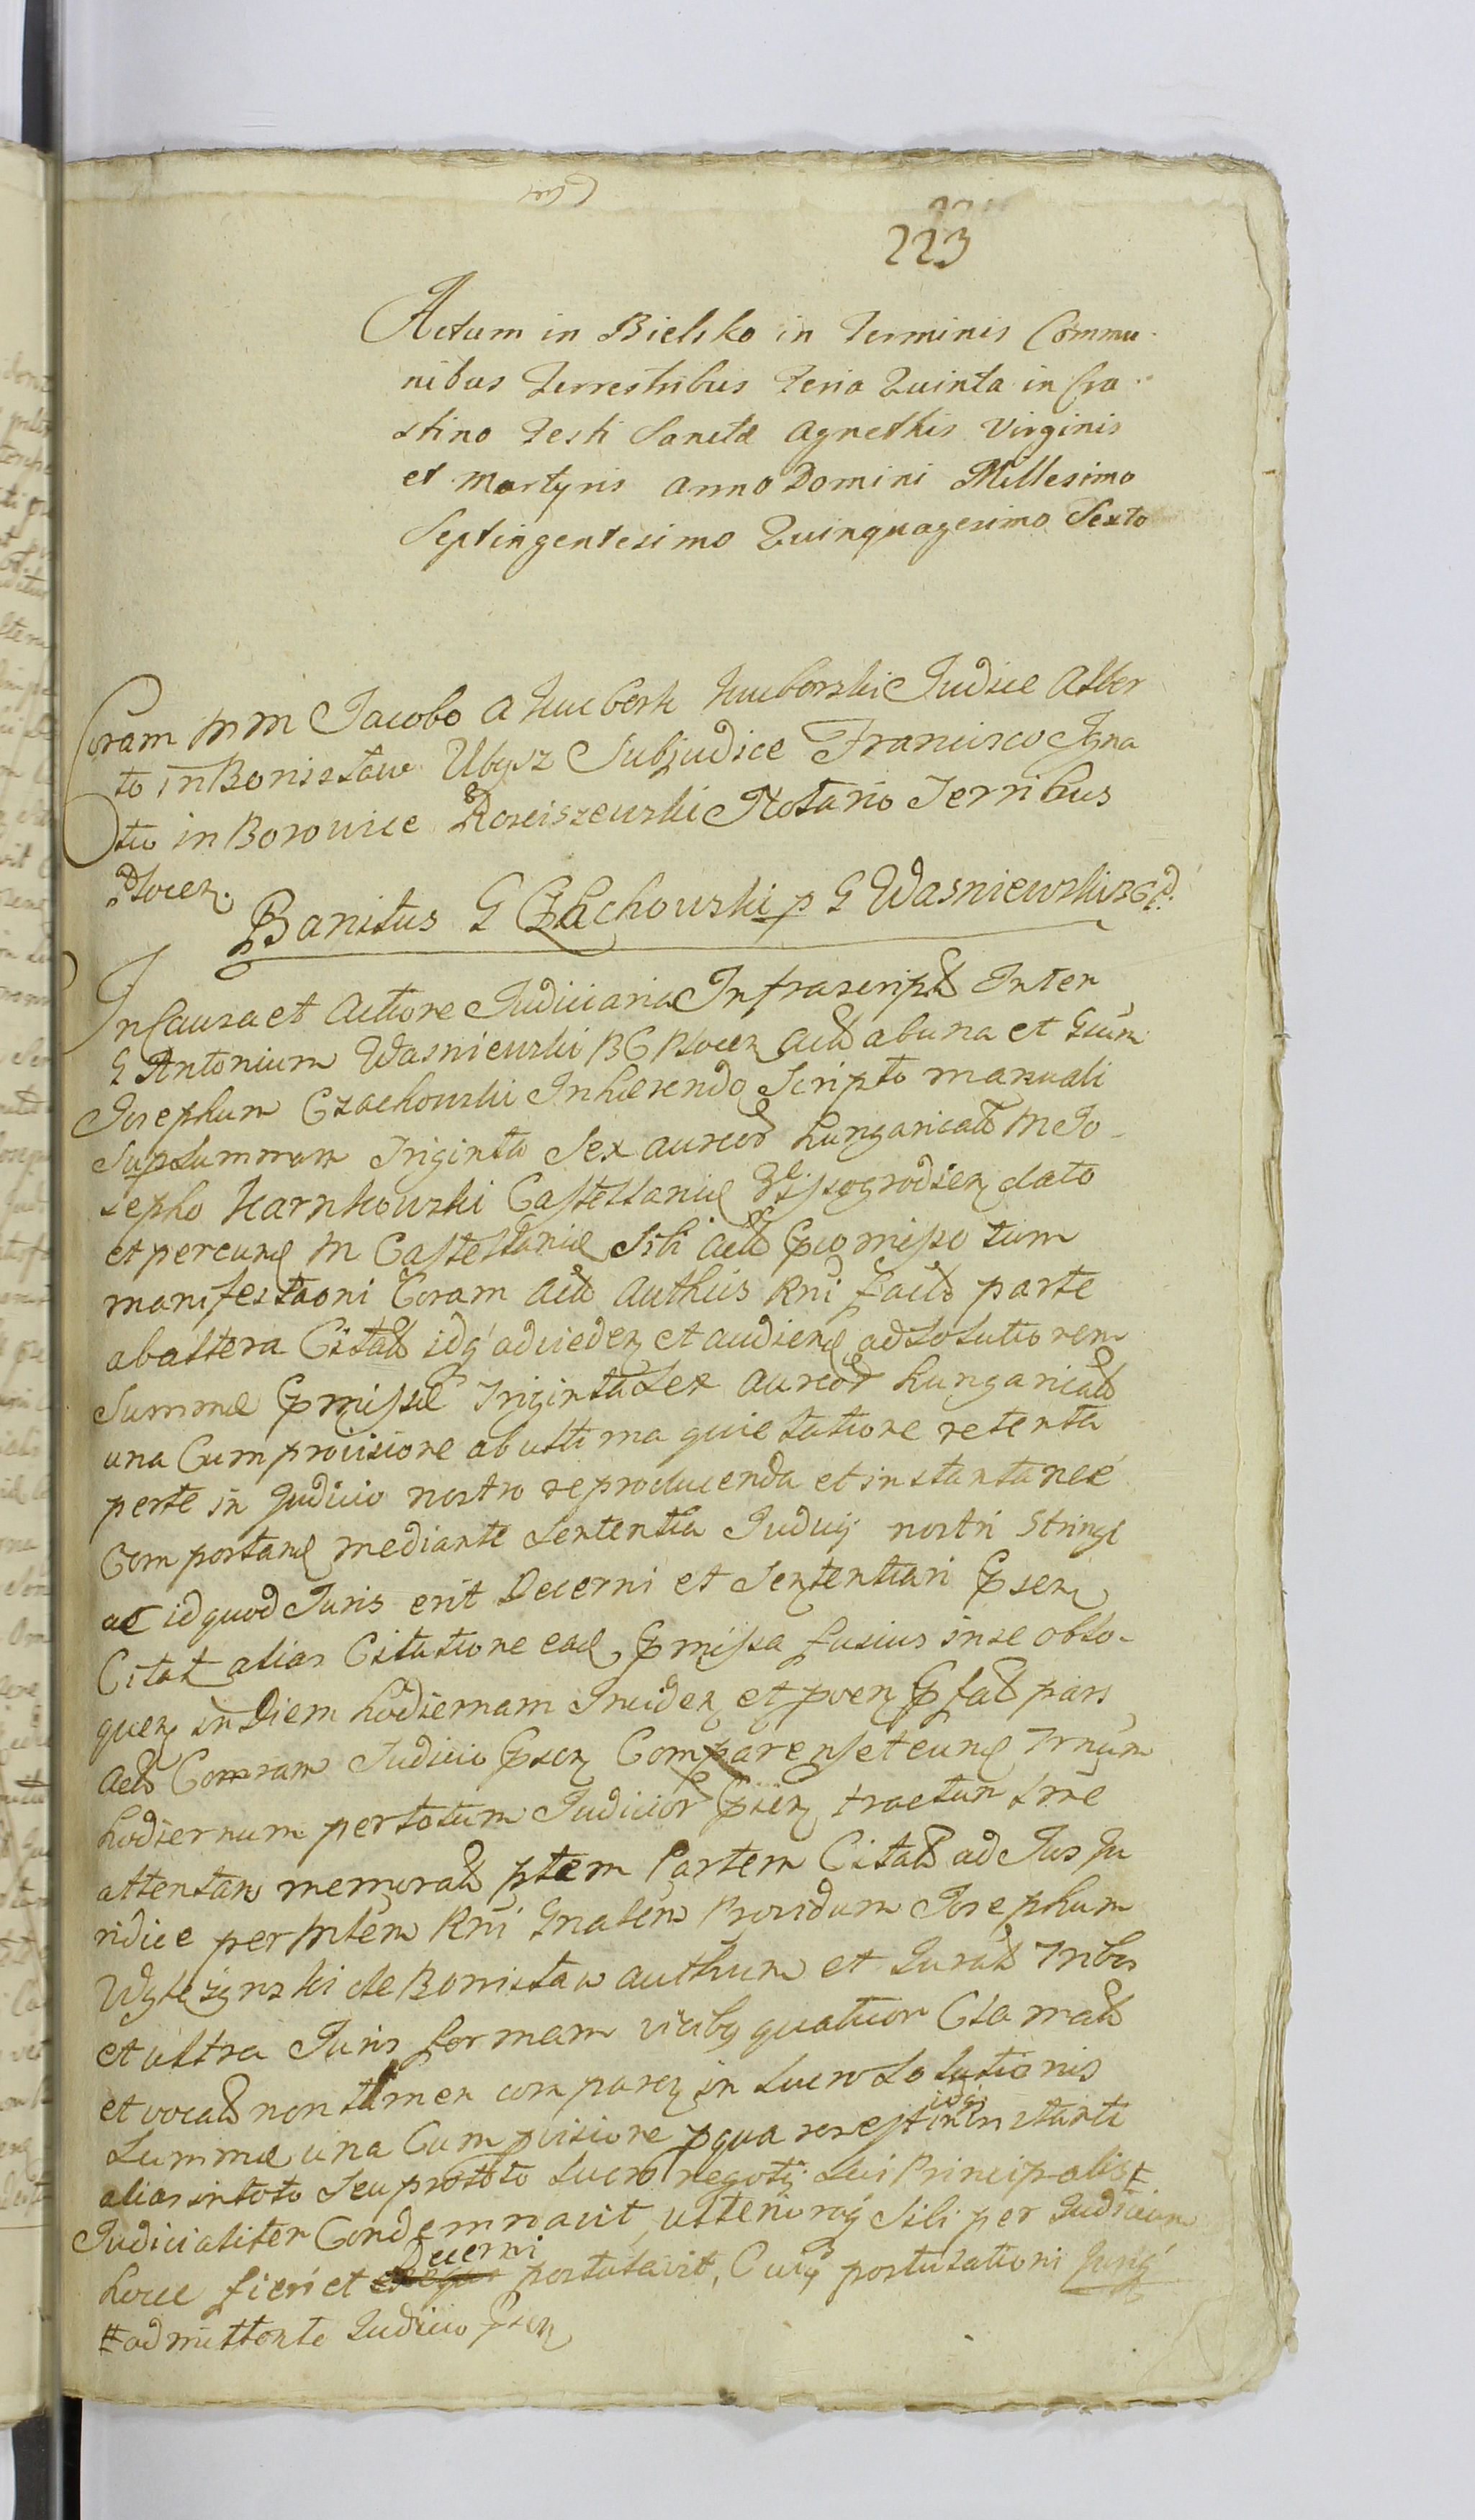 223
Actum in Bielsko in Terminis Commu
nibus Terrestribus Feria Quinta in Cra
stino Festi Sanctæ Agnethis Virginis
et Martyris Anno Domini Millesimo
Septingentesimo Quinquagesimo Sexto
Coram MM Jacobo a Judice Alber
to in Bonisław Ubysz Subjudice Francisco Igna
tio in Borowice Rosciszewski Notario Terribus
Plocen.
Banitus G Czachowski p G Wasniewski BGP.
In Causa et Actione Judiciaria Infrascript Inter
G Antonium Wasniewski BG Plocen Act ab una et Gsum
Josephum Czachowski Inhærendo Scripto manuali
Sup Summam Triginta Sex aureor hungarical M Jo-
sepho Karnkowski Castellanid dato
et per eund M Castellanid Sibi Act promisso tum
manifestaoni Coram Act Authcis Rni fact parte
ab altera Citat idq adviden et audiend ad Solutionem
Summæ præmissæ Triginta Sex aureor hungarical
una Cum provisione ab ultima quietatione retenta
perte in Judicio nostro reproducenda et instantanee
Comportand mediante Sententia Judicij nostri Stringi
ac id quod Juris erit Decerni et Sententiari præsen
Citat alias Citatione ead præmissa fusius in se oblo-
quen in Diem hodiernam Inciden et proven præfat pars
Act Coram Judicio præsen Comparens et eund Trnum
hodiernum per totum Judicior præsen tractum Trre
attentan memorat ptem Partem Citat ad Jus Ju
ridice per Mtem Rni Gnalem Providum Josephum
de Bonisław authum et Jurat Tribs
et ultra Juris formam vicibg quatuor Clamat
et vocat non tamen comparen in Lucro Solutionis
Summæ una Cum pvisione pqua res est in instanti
alias in toto Seu pro toto Lucro negotij Sui Principalis #
Judicialiter Condemnavit, ulteriorq Sibi per Judicium
hocce fieri et Decerni postulavit, Cuig postulationi
# admittente Judicio præsen